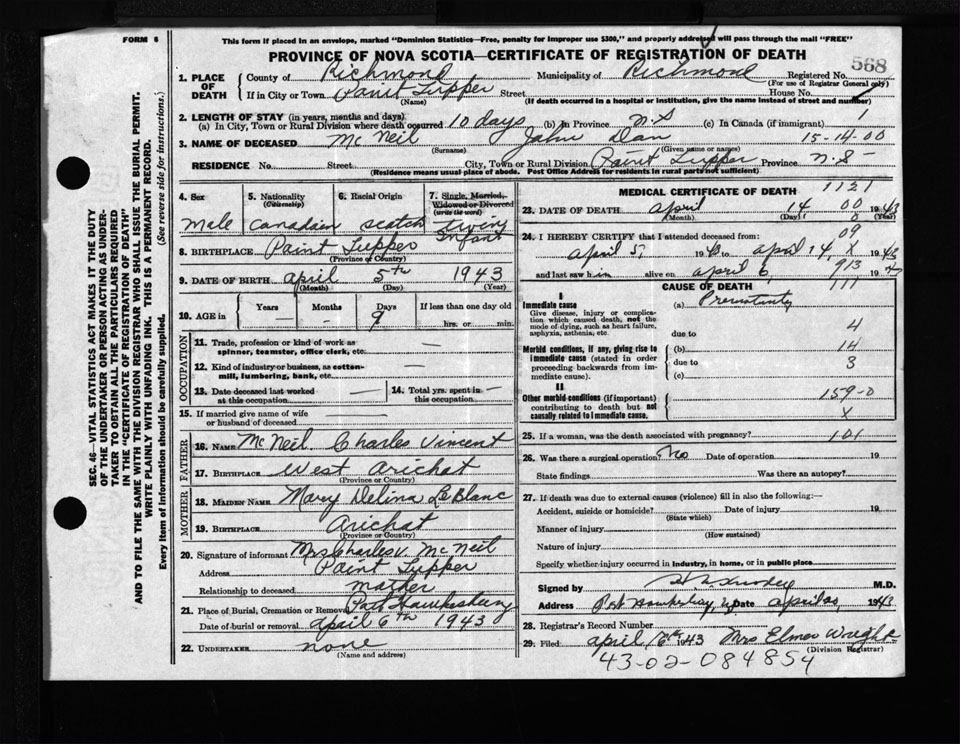 FORM 6
This form if placed in an envelope, marked "Dominion Statistics—Free, penalty for improper use $300," and properly addressed will pass through the mail "FREE"
PROVINCE OF NOVA SCOTIA—CERTIFICATE OF REGISTRATION OF DEATH
568
1. PLACE OF DEATH County of Richmond Municipality of Richmond Registered No.
(For use of Registrar General only)
If in City or Town Point Tupper Street House No.
(Name) (If death occurred in a hospital or institution, give the name instead of street and number)
2. LENGTH OF STAY (in years, months and days)
(a) In City, Town or Rural Division where death occurred 10 days (b) In Province N.S (c) In Canada (if immigrant) 1
15-14-00
3. NAME OF DECEASED Mc Neil John Dan
(Surname) (Given name or names)
RESIDENCE No. Street City, Town or Rural Division Point Tupper Province N.S-
(Residence means usual place of abode. Post Office Address for residents in rural parts not sufficient)
4. Sex Male
5. Nationality (Citizenship) Canadian
6. Racial Origin Scotch
7. Single, Married, Widowed or Divorced (write the word) Infant
8. BIRTHPLACE Point Tupper
(Province or Country)
9. DATE OF BIRTH April 5th 1943
(Month) (Day) (Year)
10. AGE in Years — Months — Days 9 If less than one day old
hrs. or min.
OCCUPATION
11. Trade, profession or kind of work as spinner, teamster, office clerk, etc. —
12. Kind of industry or business, as cotton-mill, lumbering, bank, etc. —
13. Date deceased last worked at this occupation — 14. Total yrs. spent in this occupation —
15. If married give name of wife or husband of deceased —
FATHER
16. NAME Mc Neil Charles Vincent
17. BIRTHPLACE West Arichat
(Province or Country)
MOTHER
18. MAIDEN NAME Mary Delina LeBlanc
19. BIRTHPLACE Arichat
(Province or Country)
20. Signature of informant Mrs Charles V. McNeil
Address Point Tupper
Relationship to deceased mother
21. Place of Burial, Cremation or Removal Port Hawkesbury
Date of burial or removal April 6th 1943
22. UNDERTAKER none
(Name and address)
MEDICAL CERTIFICATE OF DEATH 1121
23. DATE OF DEATH April 14 00 1943
(Month) (Day) 0 (Year)
24. I HEREBY CERTIFY that I attended deceased from: 09
April 5, 19 to April 14 X 1943
and last saw h im alive on April 6, 913 19
CAUSE OF DEATH 111
I
Immediate cause (a) Prematurity
Give disease, injury or complication which caused death, not the mode of dying, such as heart failure, asphyxia, asthenia, etc. due to 4
Morbid conditions, if any, giving rise to immediate cause (stated in order proceeding backwards from immediate cause). (b) 14
due to 3
(c)
II
Other morbid conditions (if important) contributing to death but not causally related to immediate cause. 159-0
X
25. If a woman, was the death associated with pregnancy? 101
26. Was there a surgical operation? No Date of operation 19
State findings Was there an autopsy?
27. If death was due to external causes (violence) fill in also the following:—
Accident, suicide or homicide? Date of injury 19
(State which)
Manner of injury
(How sustained)
Nature of injury
Specify whether injury occurred in industry, in home, or in public place
Signed by M.D.
Address Date April 20, 1943
28. Registrar's Record Number
29. Filed April 1943 Mrs Elmer Wright
(Division Registrar)
43-02-084854
SEC. 46—VITAL STATISTICS ACT MAKES IT THE DUTY
OF THE UNDERTAKER OR PERSON ACTING AS UNDER-
TAKER TO OBTAIN ALL THE PARTICULARS REQUIRED
IN THE "CERTIFICATE OF REGISTRATION OF DEATH"
AND TO FILE THE SAME WITH THE DIVISION REGISTRAR WHO SHALL ISSUE THE BURIAL PERMIT.
WRITE PLAINLY WITH UNFADING INK. THIS IS A PERMANENT RECORD.
Every item of information should be carefully supplied. (See reverse side for instructions.)